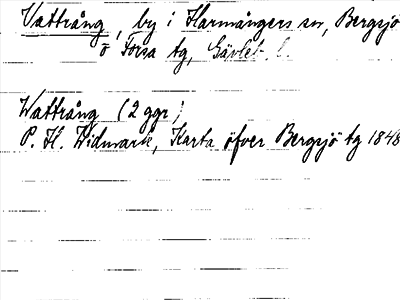 Vattrång, by i Harmångers sn, Bergsjö
o Forsa tg, Gävleb. l.
Wattrång (2 ggr)
P. H. Widmark, Karta öfver Bergsjö tg 1848